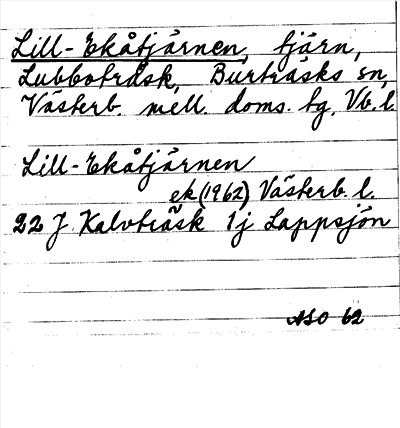 Lill-Ekåtjärnen, tjärn,
Lubboträsk, Burträsks sn,
Västerb. mell. doms. tg, Vb. l
Lill-Ekåtjärnen
ek (1962) Västerb. l.
22 J Kalvträsk 1j Lappsjön
ASO 62